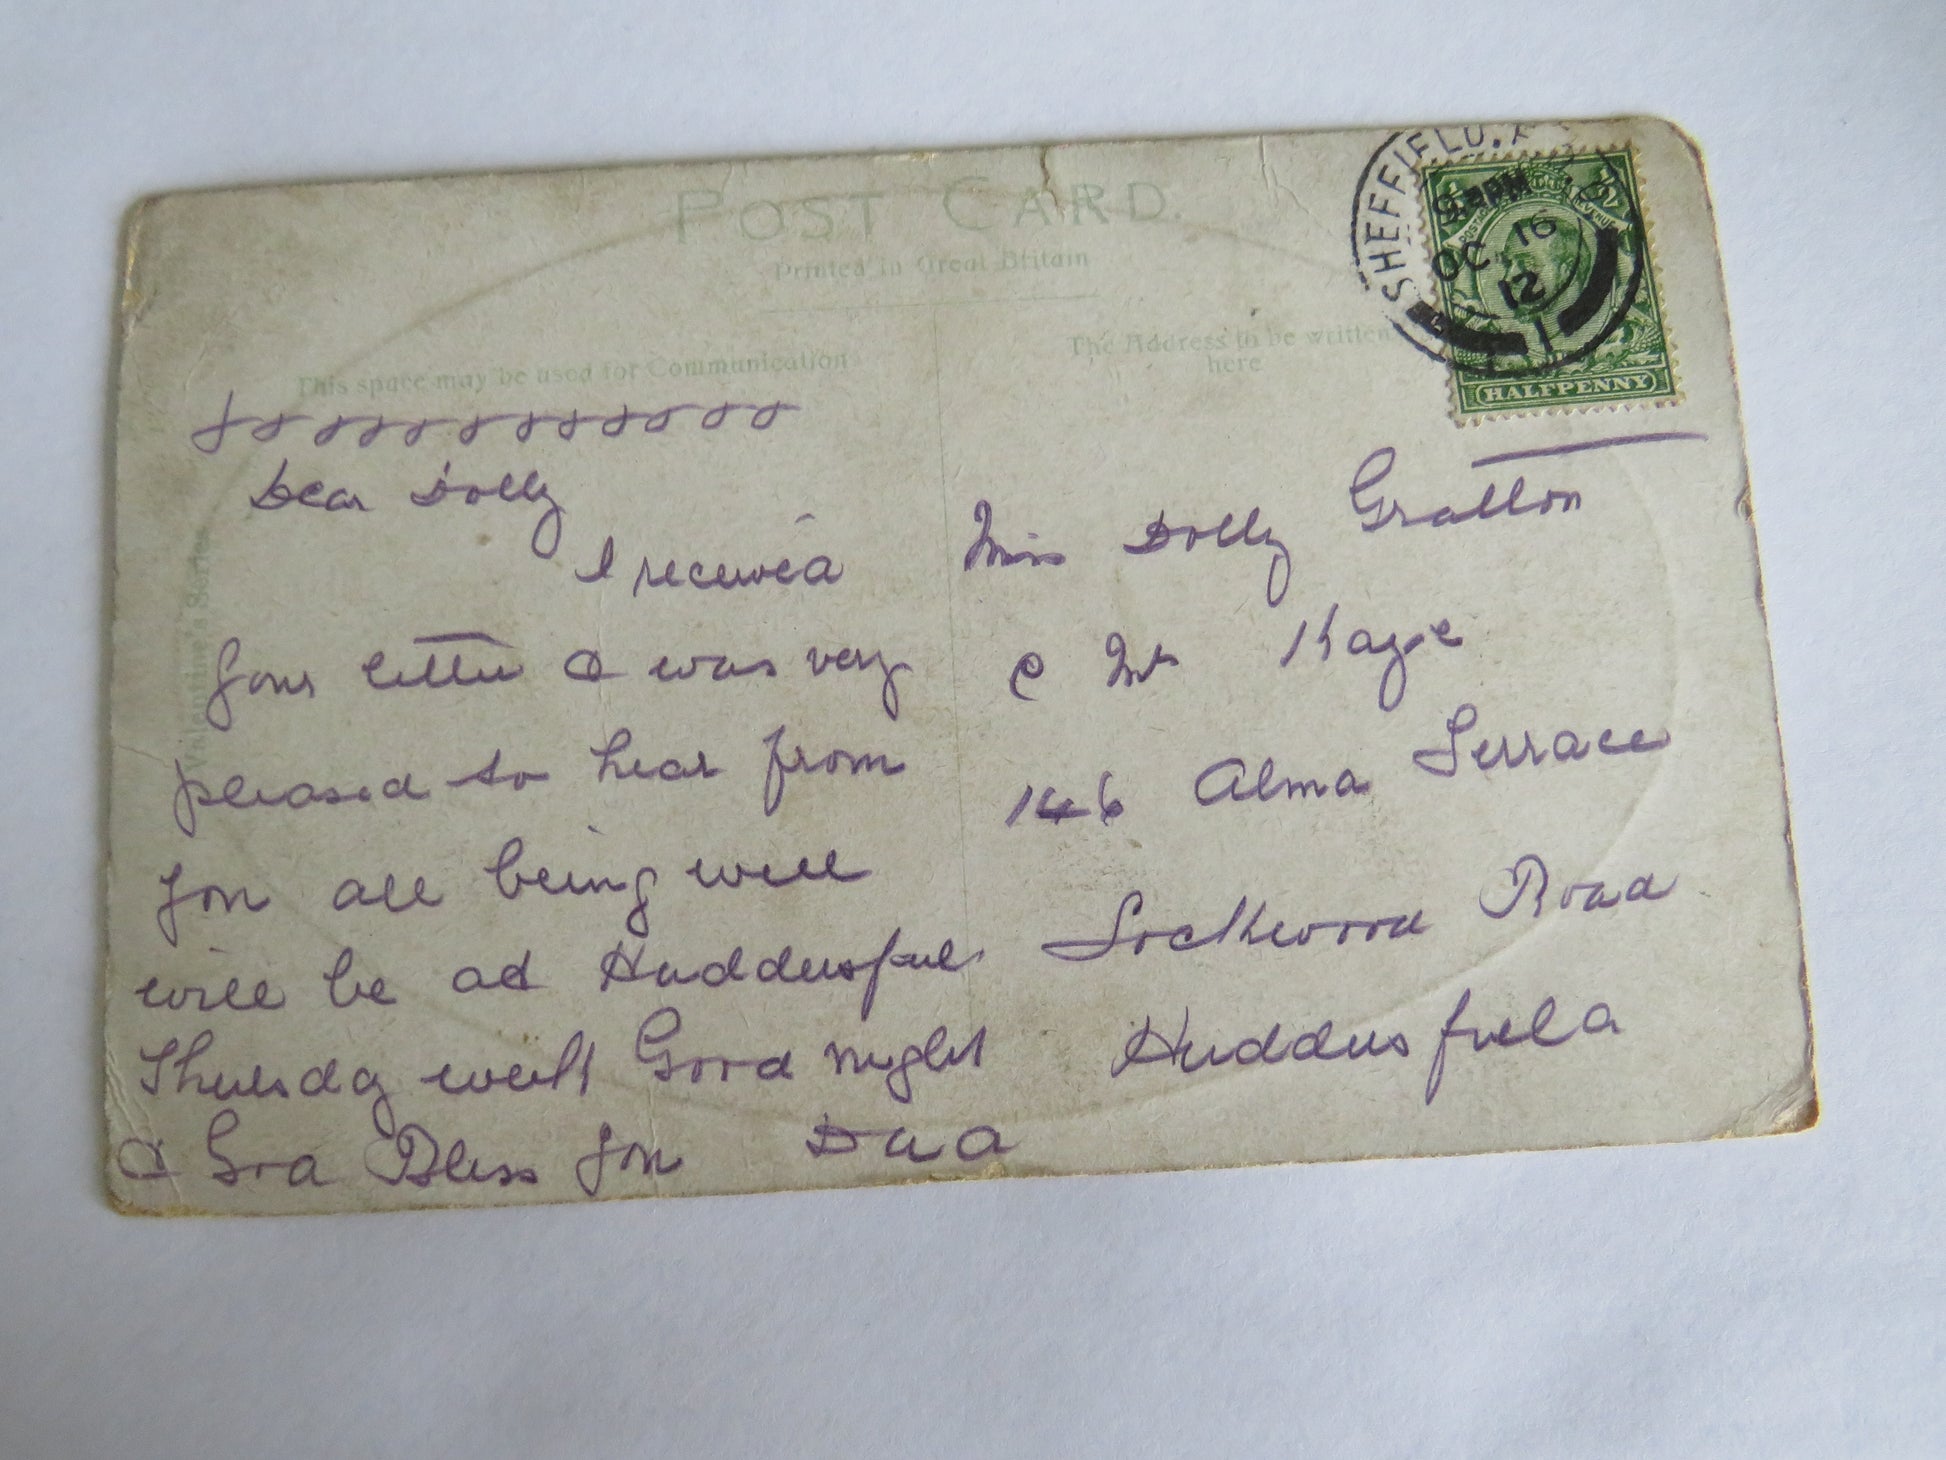 POST CARD.
Printed in Great Britain
This space may be used for Communication
The Address to be written
here
Valentine's Series
SHEFFIELD.
9. PM
OC 16
12
1
HALFPENNY
x x x x x x x x x x x x
Dear Dolly
I received
your letter & was very
pleased to hear from
you all being well
will be at Huddersfield
Thursday week Good night
& God Bless you Dad
Miss Dolly Gratton
c Mr Kaye
146 Alma Terrace
Lockwood Road
Huddersfield